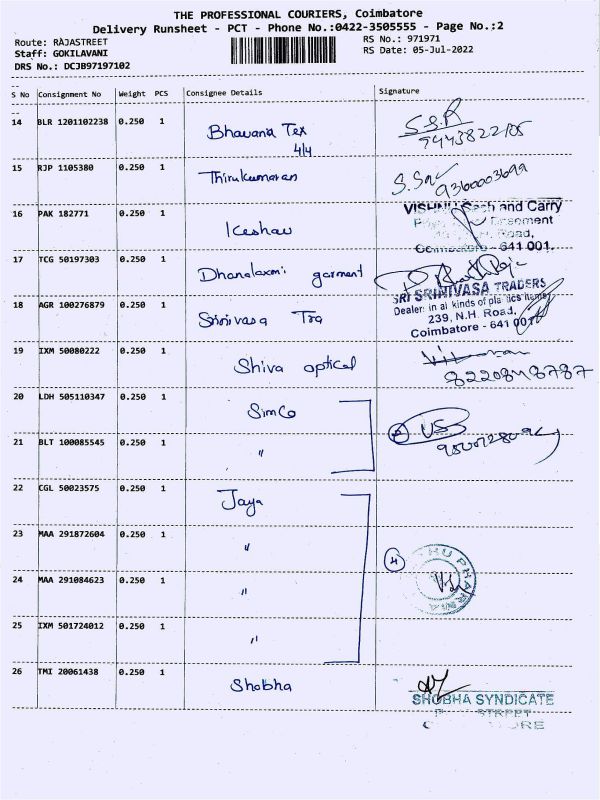 THE PROFESSIONAL COURIERS, Coimbatore
Delivery Runsheet - PCT - Phone No.:0422-3505555 - Page No.:2
Route: RAJASTREET
Staff: GOKILAVANI
DRS No.: DCJB97197102
RS No.: 971971
RS Date: 05-Jul-2022
S No Consignment No Weight PCS Consignee Details Signature
14 BLR 1201102238 0.250 1 Bhavana Tex S.S.R
4/4
15 RJP 1105380 0.250 1 Thirukumaran 9360003699
16 PAK 182771 0.250 1 Keshav
VISHNU Cash and Carry
Basement
Road,
Coimbatore - 641 001.
17 TCG 50197303 0.250 1 Dhanalaxmi garment
18 AGR 100276879 0.250 1 Srinivasa Tra
SRI SRINIVASA TRADERS
Dealer: in al kinds of plastics items
239, N.H. Road,
Coimbatore - 641 001
19 IXM 50080222 0.250 1 Shiva optical
8220848787
20 LDH 505110347 0.250 1 SimCo
21 BLT 100085545 0.250 1 " VS
22 CGL 50023575 0.250 1 Jaya
23 MAA 291872604 0.250 1 "
24 MAA 291084623 0.250 1 " 4
25 IXM 501724012 0.250 1 "
26 TMI 20061438 0.250 1 Shobha
SHOBHA SYNDICATE
STREET